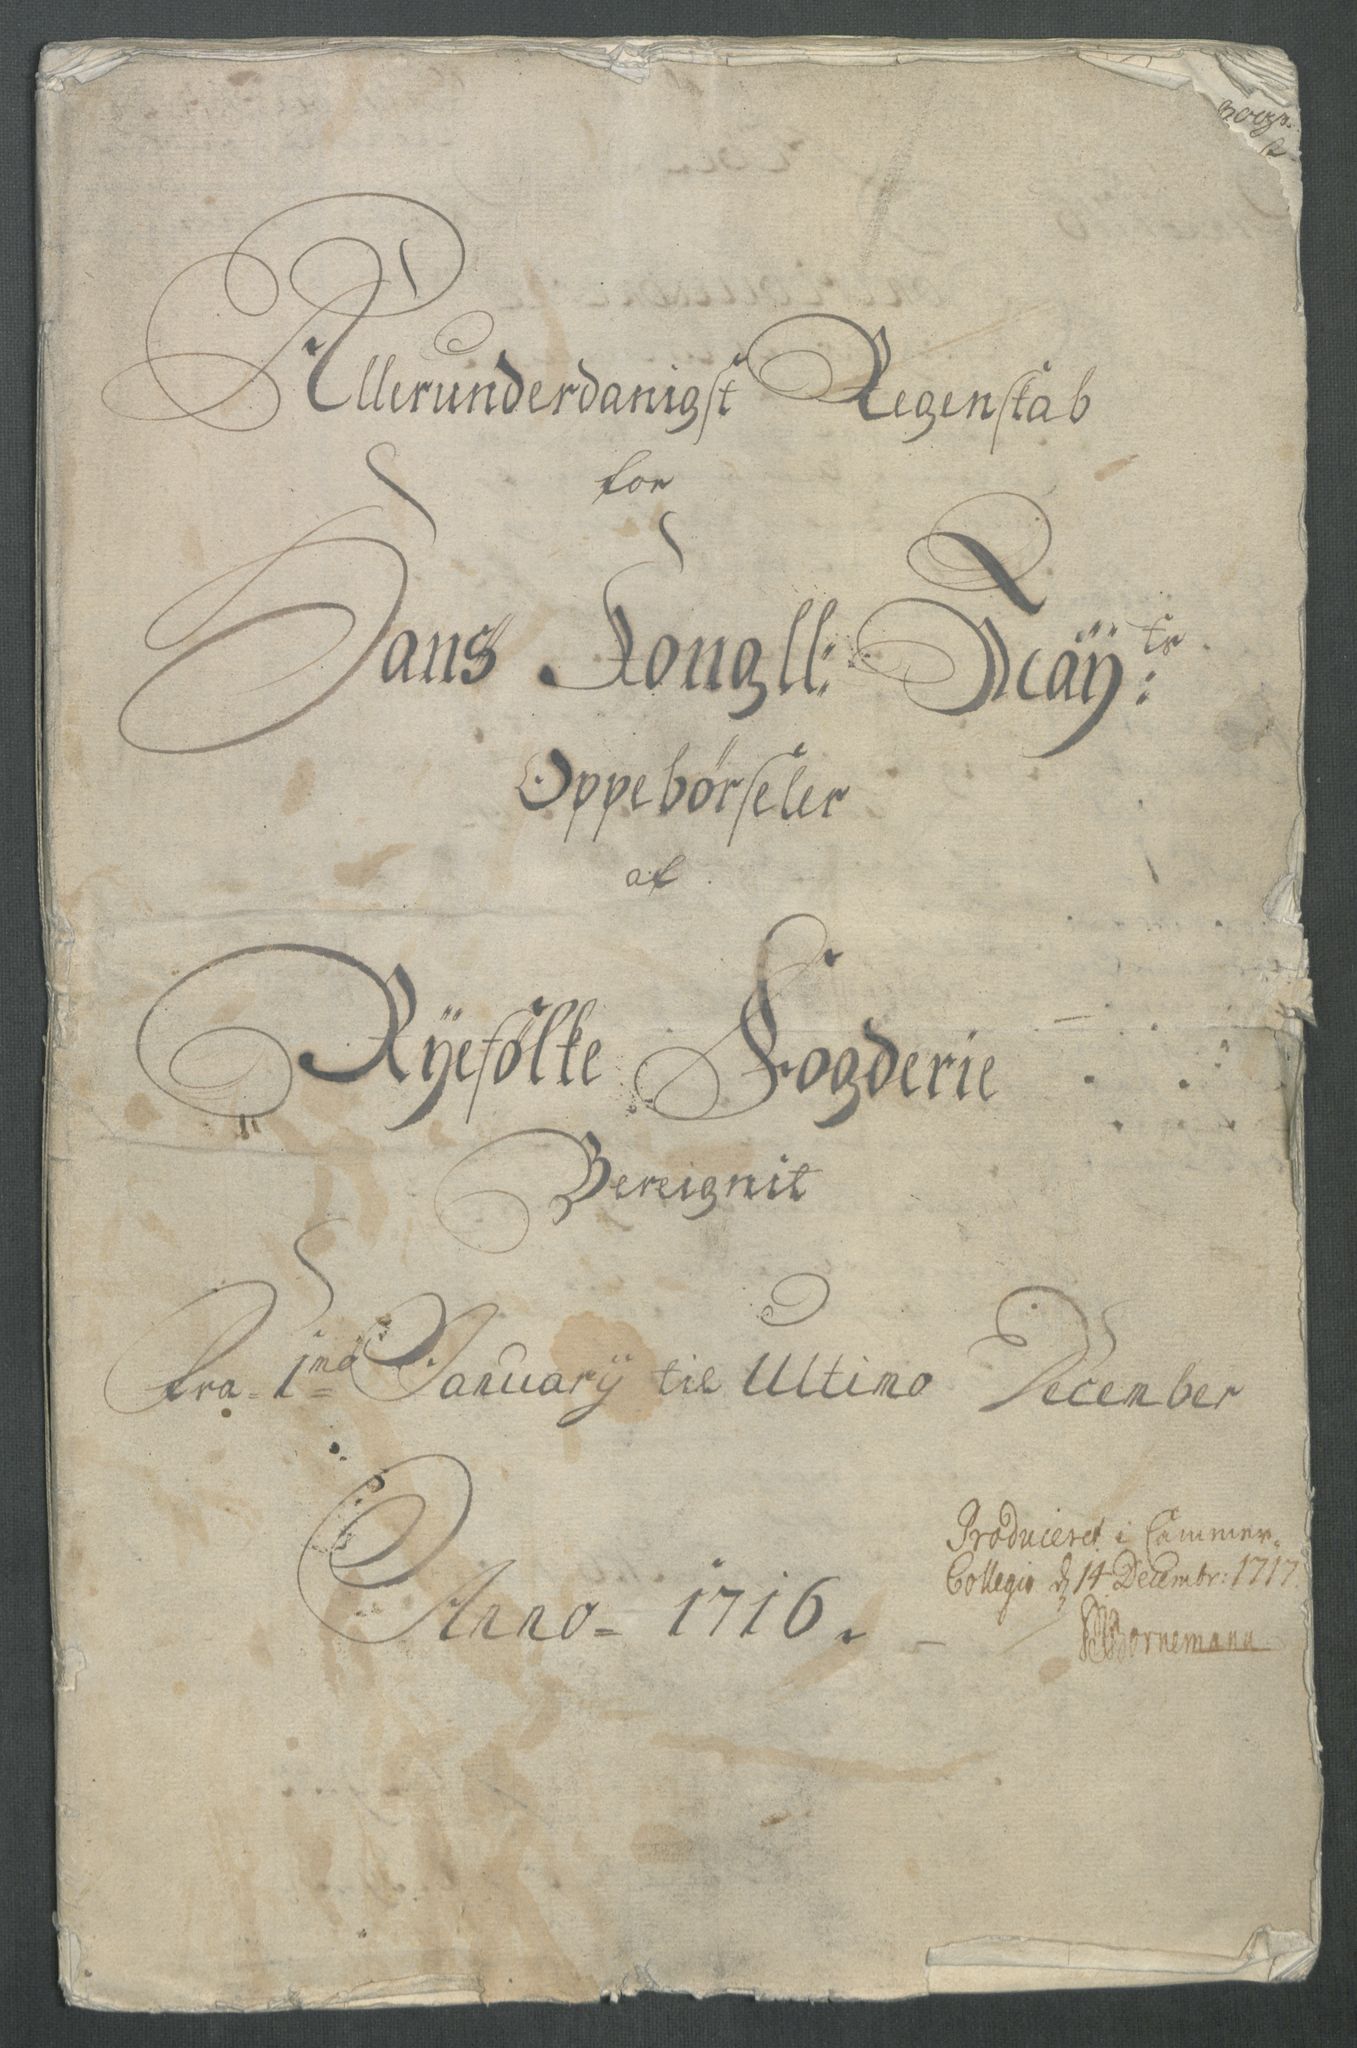 Allerunderdanigst Regenskab
for
Hans Kongll: Mäÿ:ts
Oppebörseler
af
Rÿefölke Fogderie
Bereignit
fra 1mo Januarÿ til Ultimo December
Anno 1716.
Produceret i Cammer-
Collegio d 14 Decembr: 1717
Bornemann